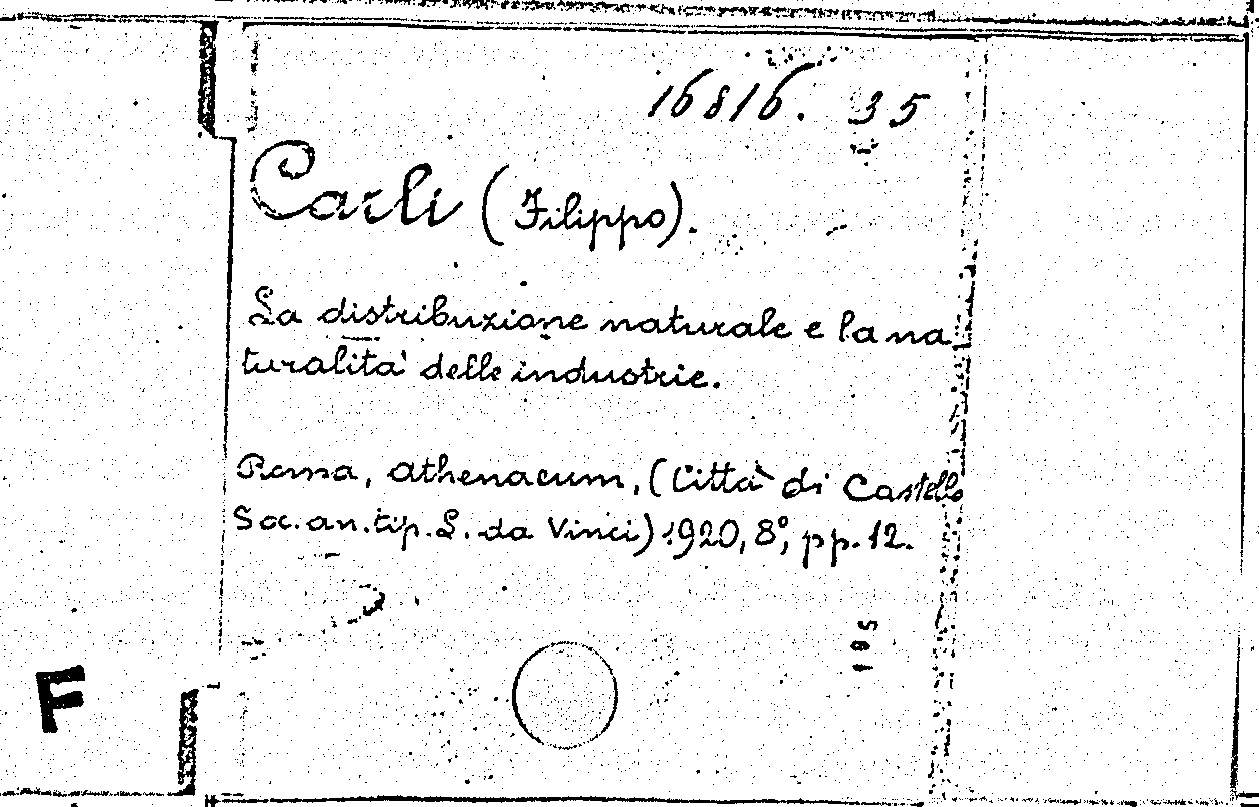 16816. 35
Carli (Filippo).
La distribuzione naturale e la na
turalità delle industrie.
Roma, Athenaeum, (Città di Castello
Soc. an. tip. L. da Vinci) 1920, 8°, pp. 12.
195
F